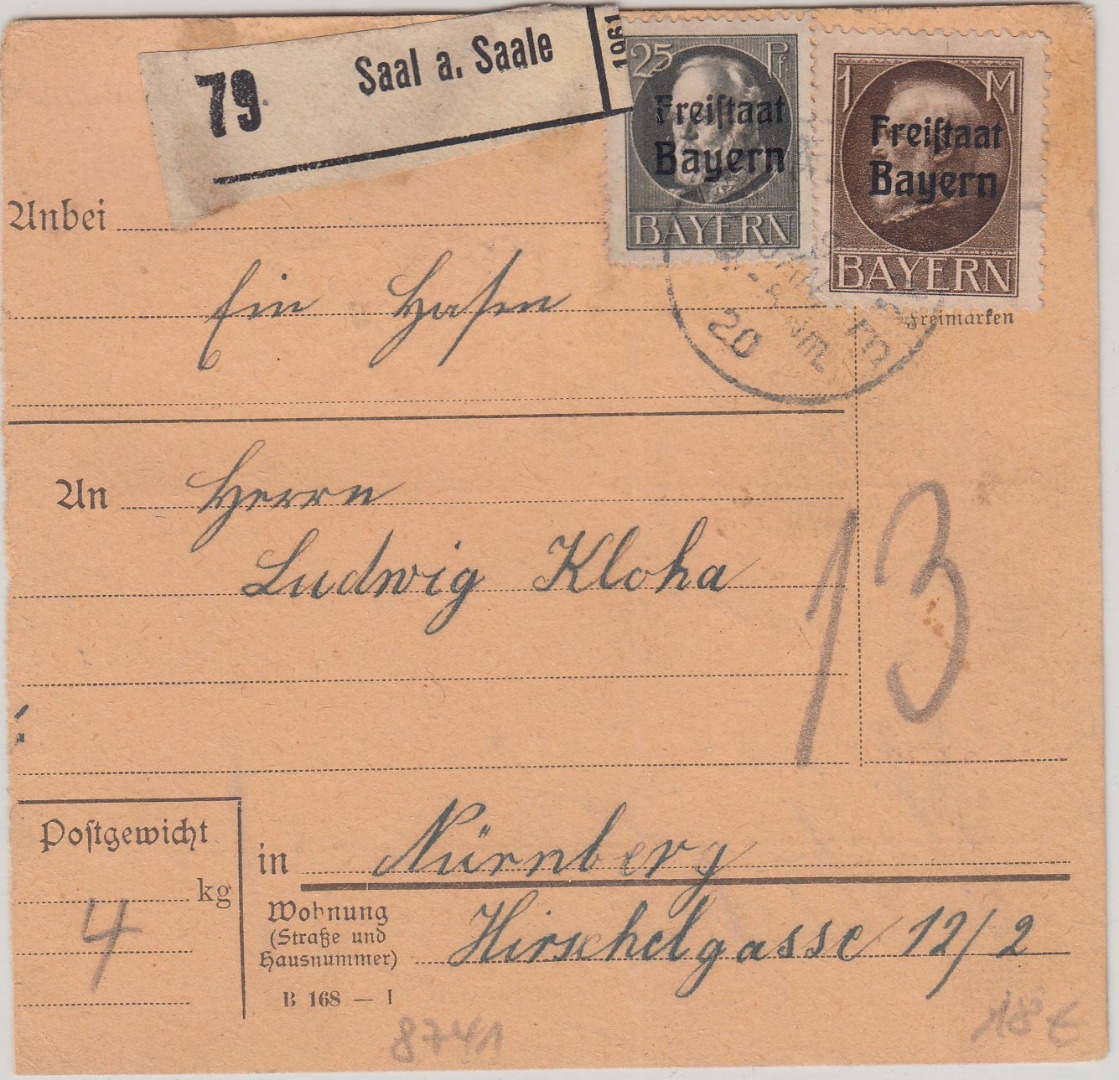 79 Saal a. Saale 1061
25 Pf
Freistaat
Bayern
BAYERN
1 M
Freistaat
Bayern
BAYERN
Anbei
Ein Hasen
20
Freimarken
An Herrn
Ludwig Kloha
13
Postgewicht
kg
4
in Nürnberg
Wohnung
(Straße und
Hausnummer)
Hirschelgasse 12/2
B 168 — I
8741
18 €